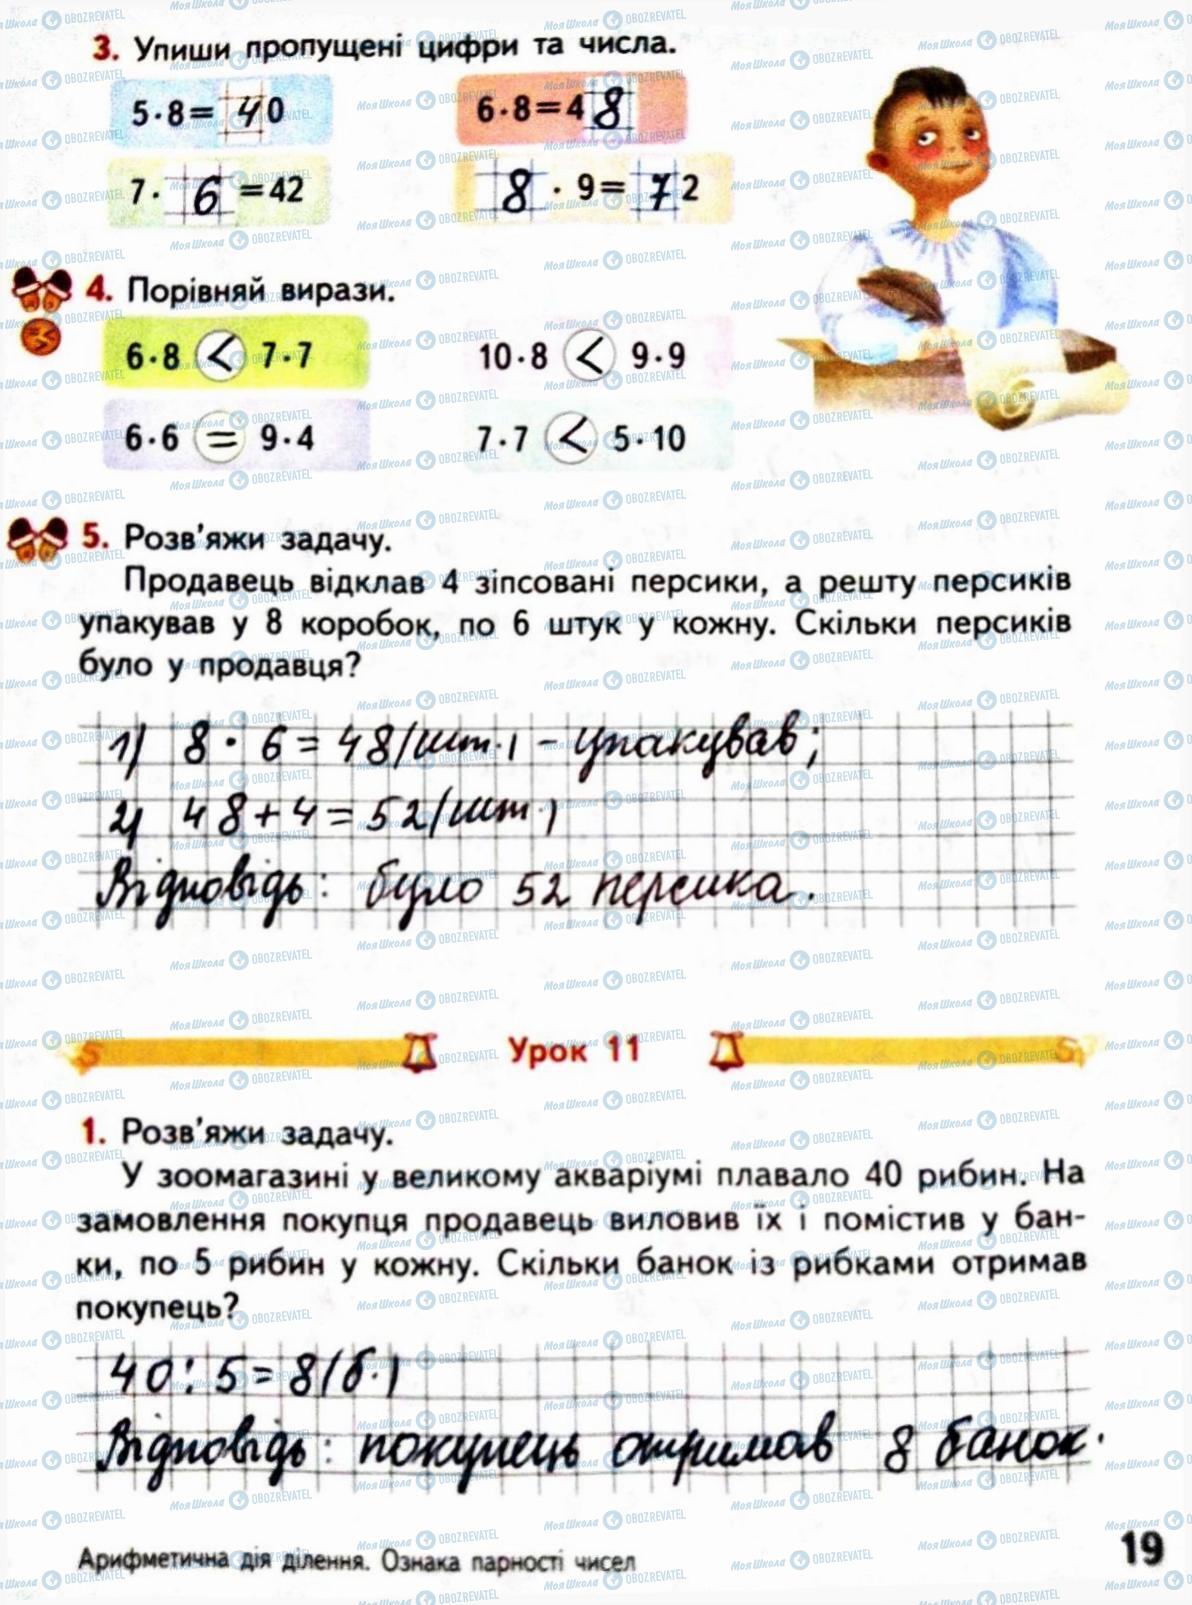 3. Упиши пропущені цифри та числа.
5·8= 40 6·8=48
7· 6 =42 8 · 9= 72
4. Порівняй вирази.
6·8 < 7·7 10·8 < 9·9
6·6 = 9·4 7·7 < 5·10
5. Розв'яжи задачу.
Продавець відклав 4 зіпсовані персики, а решту персиків
упакував у 8 коробок, по 6 штук у кожну. Скільки персиків
було у продавця?
1) 8 · 6 = 48 (шт.) - упакував;
2) 48+4=52 (шт.)
Відповідь: було 52 персика.
Урок 11
1. Розв'яжи задачу.
У зоомагазині у великому акваріумі плавало 40 рибин. На
замовлення покупця продавець виловив їх і помістив у бан-
ки, по 5 рибин у кожну. Скільки банок із рибками отримав
покупець?
40:5=8 (б.)
Відповідь: покупець отримав 8 банок.
Арифметична дія ділення. Ознака парності чисел
19
МояШкола OBOZREVATEL